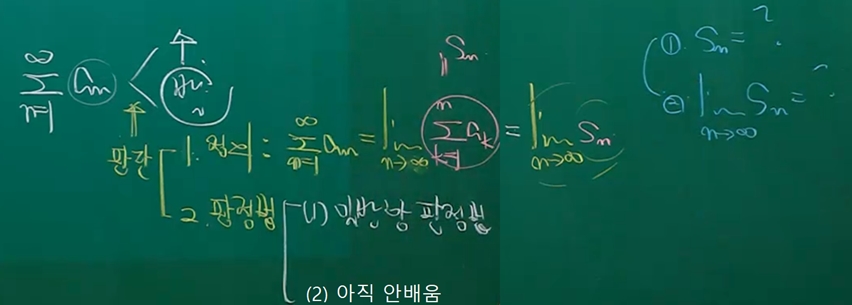 ∞
∑ aₙ <
n=1
수
발산
판단
1. 정의 : ∑_{n=1}^{∞} aₙ = lim_{n→∞} ∑_{k=1}^{n} aₖ = lim_{n→∞} Sₙ
Sₙ
2. 판정법
(1) 일반항 판정법
(2) 아직 안배움
① Sₙ = ?
② lim_{n→∞} Sₙ = ?